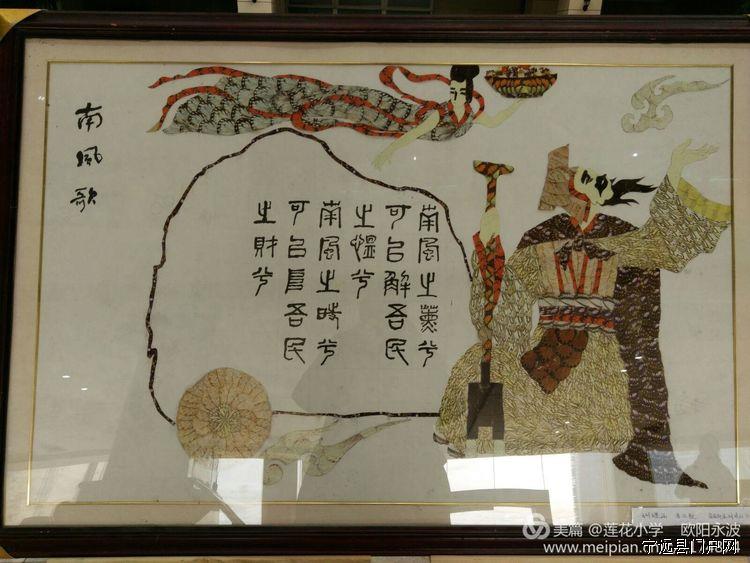 南風歌
南風之薰兮
可以解吾民
之慍兮
南風之時兮
可以阜吾民
之財兮
美篇 @莲花小学 欧阳永波
www.meipian.cn
宁远县门户网